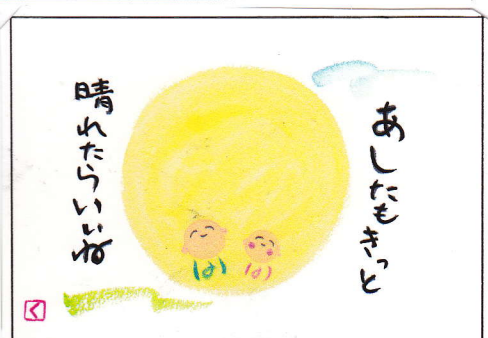 あしたもきっと
晴れたらいいね
く